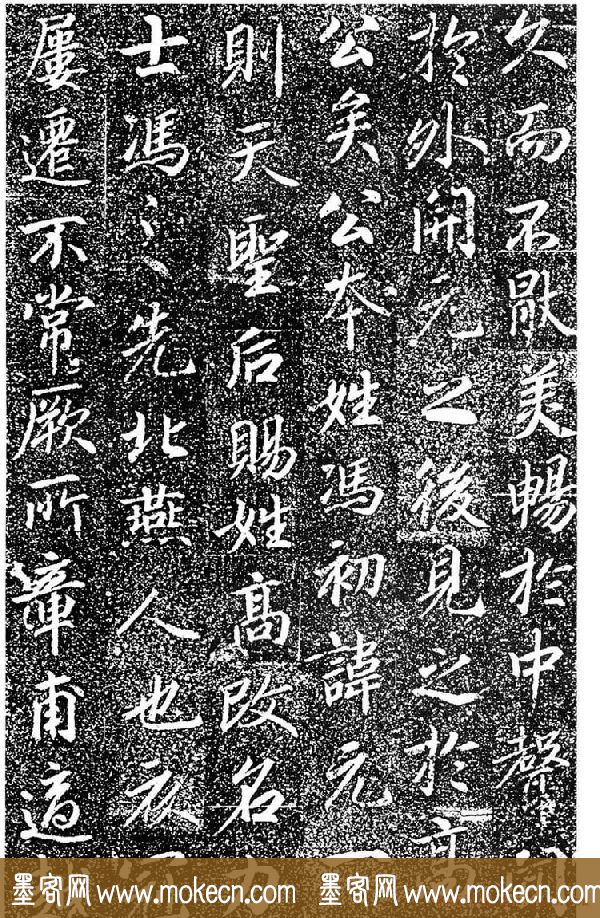 久而不厭美暢於中聲聞
於外開元之後見之於高
公矣公本姓馮初諱元一
則天聖后賜姓高改名力
士馮之先北燕人也衣冠
屢遷不常厥所章甫適
墨客网 www.mokecn.com 墨客网 www.mokecn.com